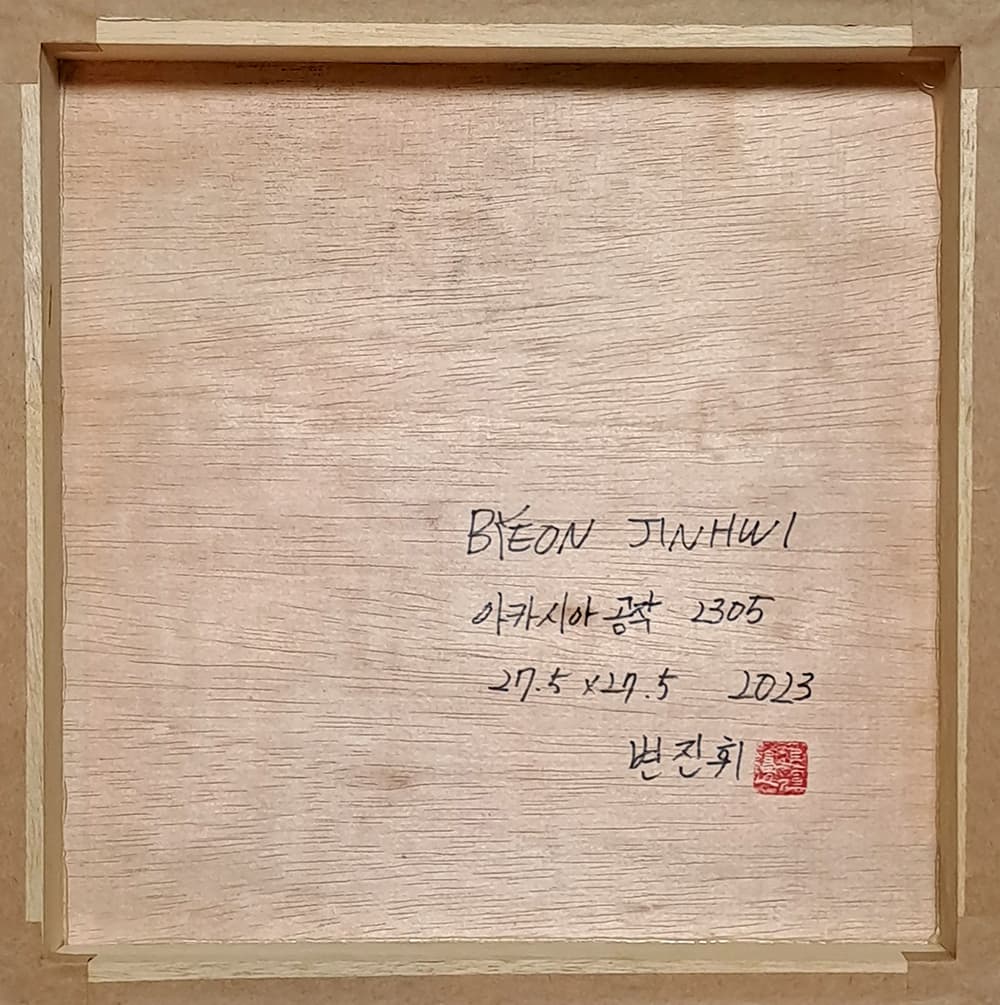 BYEON JINHWI
아카시아 공작 2305
27.5 x 27.5 2023
변진휘